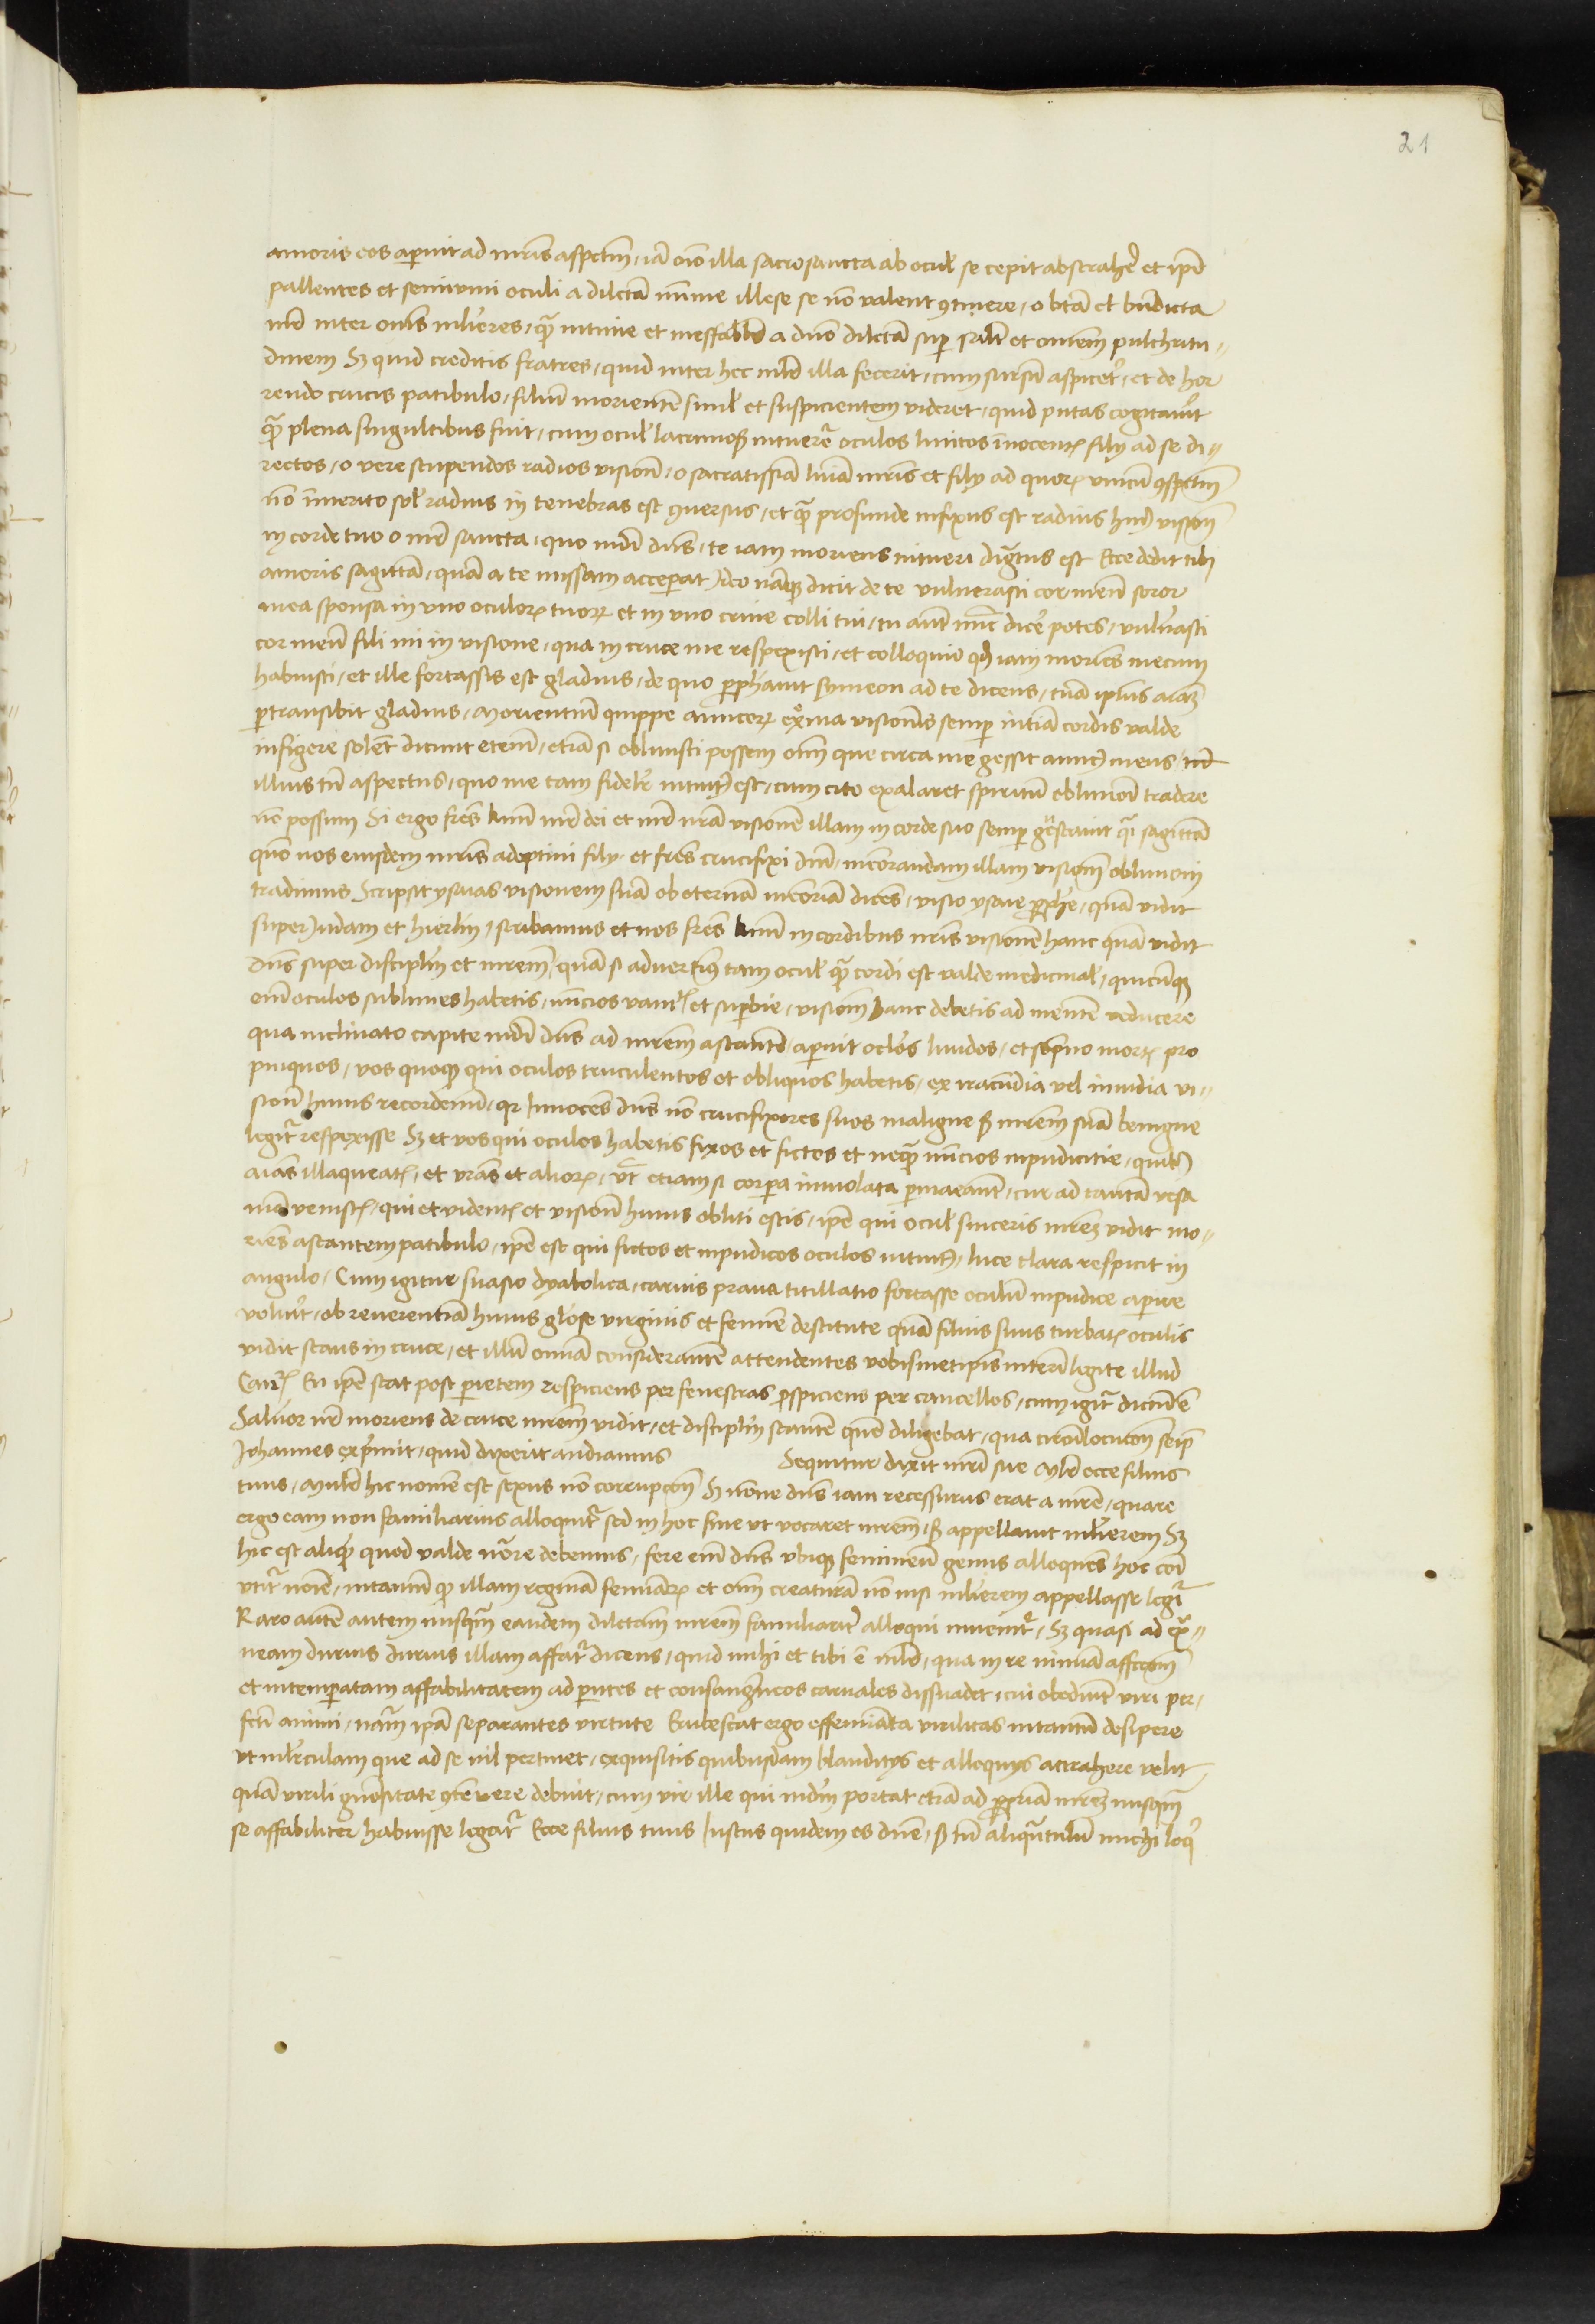 21
amoris eos aperuit ad mr̄is aspectū, iā oīo illa sacrosancta ab ocul' se cepit abstrahe' et ip̄i
pallentes et seminimi oculi a dilctā nimie illese se nō valent 9tinere, o btā et bn̄dicta
mr̄ inter om̄s ml̄ieres, quā intime et ineffabilr̄ a dn̄o dilctā sup salū et omnem pulchritu-
dinem Sꝫ quid creditis fratres, quid inter hec ml̄r illa fecerit, cum sursū aspiceret, et de hor
rendo crucis patibulo, filiū morientē simul et suspicientem videret, quid putas cogitavit
quā plena singultibus fuit, cum ocul' lacrimos' intuerēt oculos linitos īnocentis filij ad se di-
rectos, o vere stupendos radios visionū, o sacratissiā linia mr̄is et filij ad quorꝫ unicū 9spectū
nō īmerito sol' radius in tenebras est 9versus, et quā profunde infixus est radius hui9 vision
in corde tuo o mr̄ sancta, quo nudi dn̄s, te iam moriens intueri dignatus est Ecce dedit tibi
amoris sagittā, quā a te missam acceperat Ideo namqꝫ dicit de te vulnerasti cor meū soror
mea sponsa in uno oculorꝫ tuorꝫ et in uno crine colli tui, tu aūt nūc dice' potes, vuln'asti
cor meū fili mi in visione, qua in cruce me respexisti, et colloquio qd' iam moriēs mecum
habuisti, et ille fortassis est gladius, de quo pphavit symeon ad te dicens, tuā ipsius aiaꝫ
ptransibit gladius, Morientiū quippe amicorꝫ ex̄ma visionis semp intiā cordis valde
infigere solēt dicunt etenī, etiā si oblivisci possem oīm que circa me gessit amic9 meus
illius tn̄ aspectus, quo me tam fidelr̄ intuit9 est, cum cito exalaret spiritū oblivioni tradere
nō possum Si ergo fr̄es kmī mr̄ dei et mr̄ nr̄a visionē illam in corde suo semp gestavit quī sagittā
quō nos eiusdem mr̄is adoptivi filij, et fr̄es crucifixi dn̄i, memorandam illam visionē oblivioni
tradimus Scripsit ysaias visionem suā ob eternā memoriā dicēs, visio ysaie pphe, quā vidit
super Iudam et hierlm, scribamus et nos fr̄es kmī in cordibus nr̄is visionē hanc quā vidit
dn̄s super disciplm et mr̄em, quā si advertim9 tam ocul' quā cordi est valde medicinal', quicūqꝫ
enī oculos sublimes habetis, nūcios vanitꝫ et supbie, visionē hanc debetis ad mentē reducere
qua inclinato capite nudi dn̄s ad mr̄em astantē, aperuit oc'los lividos, et sōpno mortꝫ pro
pinquos, vos quoqꝫ qui oculos truculentos et obliquos habetis, ex iracūdia vel invidia vi-
sionī huius recordemī, qꝫ innocēs dn̄s nō crucifixores suos maligne sꝫ mr̄em suā benigne
legit' respexisse Sꝫ et vos qui oculos habetis fixos et fictos et nequā nūcios inpudicitie, quib9
aias illaqueatꝫ, et vr̄as et aliorꝫ, ut etiam si corpa inviolata pmaneant, cur ad tantā vesa
niā venistꝫ, qui et videntꝫ et visionī huius obliti estis, ipē qui ocul' sinceris mr̄eꝫ vidit mo-
riēs astantem patibulo, ipē est qui fictos et inpudicos oculos intuit', luce clara respicit in
angulo, Cum igitur suasio dyabolica, carnis prava titillatio fortasse oculū inpudice aperire
voluit, ob reverentiā huius glōse virginis et femine destitute quā filius suus turbatꝫ oculis
vidit stans in cruce, et illū omnia considerantē attendentes vobismetipis interī legite illud
Cantꝫ En ipē stat post parietem respiciens per fenestras pspiciens per cancellos, cum igit' dicendū ē
Salvor nr̄ moriens de cruce mr̄em vidit, et disciplm stantē quē diligebat, qua circūlocutonē seip
Iohannes expīmit, quid dixerit audiamus Sequitur dixit mr̄i sue Ml̄r ecce filius
tuus, Mulr̄ hic nomē est sexus nō corruptōīs Sꝫ nōne dn̄s iam recessurus erat a mr̄e, quare
ergo eam non familiarius alloquit' sed in hoc fine ut vocaret mr̄em, sꝫ appellavit ml̄ierem Sꝫ
hic est aliqd' quod valde nōre debemus, fere enī dn̄s ubiqꝫ femineū genus alloquēs hoc cōi
utit' noīe, intantū qꝫ illam reginā feminarꝫ et oīm creaturā nō nisi ml̄ierem appellasse legit'
Raro autē autem nusqꝫ eandem dilectam mr̄em familiarit' alloqui invenit', Sꝫ quasi ad extra-
neam durius durius illam affat' dicens, quid mihi et tibi ē ml̄r, qua in re nimiā affectōnem
et intemperatam affabilitatem ad parentes et consanguineos carnales dissuadet, cui obediunt viri per-
fecti animi, nam ipā separantes virtute Erubescat ergo effeminata virilitas intantū desipere
ut ml̄ierculam que ad se nil pertinet, exquisitis quibusdam blanditijs et alloquijs attrahere velit
quā virili gn̄ositate 9tenere debuit, cum vir ille qui mūdū portat etiā ad ppriā mr̄eꝫ nusqꝫ
se affabiliter habuisse legat' Ecce filius tuus Iustus quidem es dn̄e, sꝫ tn̄ aliquātulū michi loq'